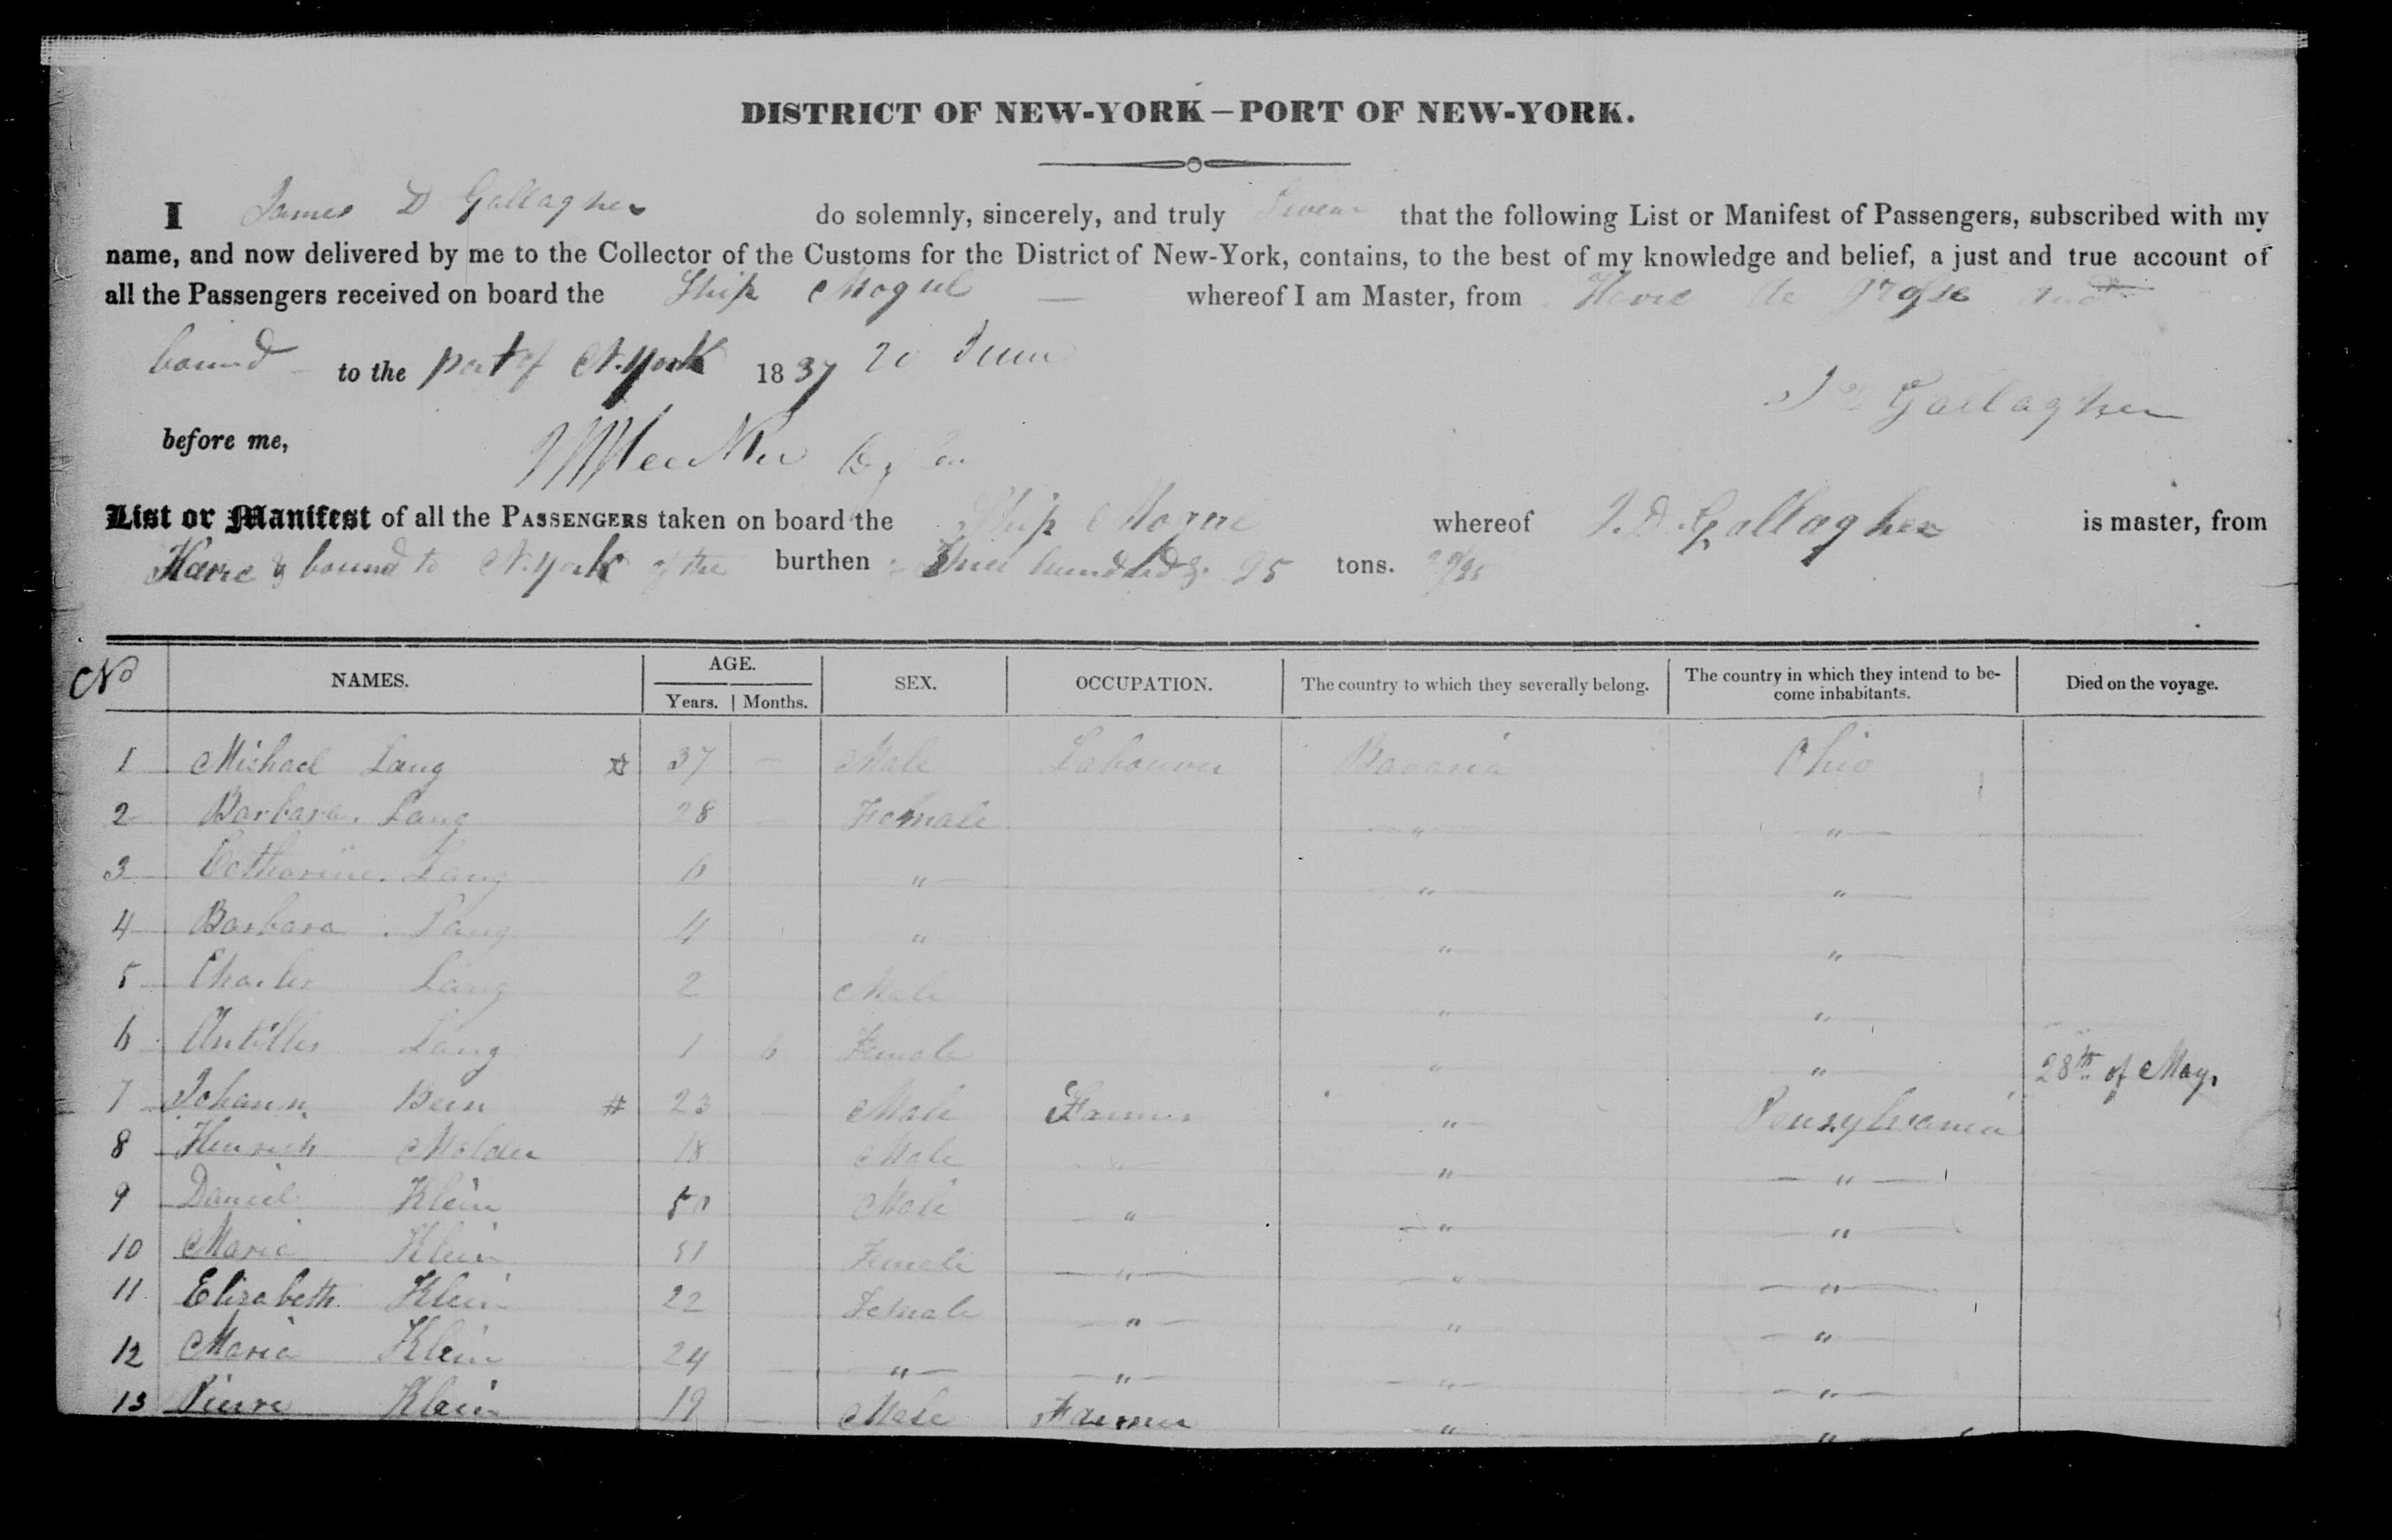 DISTRICT OF NEW-YORK—PORT OF NEW-YORK.
I James D Gallagher do solemnly, sincerely, and truly Swear that the following List or Manifest of Passengers, subscribed with my
name, and now delivered by me to the Collector of the Customs for the District of New-York, contains, to the best of my knowledge and belief, a just and true account of
all the Passengers received on board the Ship Mogul — whereof I am Master, from Havre de and
bound to the port of N. York 1837 20 June
J D Gallagher
before me,
List or Manifest of all the PASSENGERS taken on board the Ship Mogul whereof J. D. Gallagher is master, from
Havre & bound to N. York of the burthen hundred & 95 tons. 95
No NAMES. AGE. Years. Months. SEX. OCCUPATION. The country to which they severally belong. The country in which they intend to become inhabitants. Died on the voyage.
1 Michael Lang 37 — Male Labourer Bavaria Ohio
2 Barbara Lang 28 — Female " "
3 Catharine Lang 6 " " "
4 Barbara Lang 4 " " "
5 Charles Lang 2 Male " "
6 Lang 1 6 Female " " 28th of May.
7 Johann Bein # 23 Male Farmer " Pensylvania
8 Heinrich 18 Male " " "
9 Daniel Klein 50 Male " " "
10 Maria Klein 51 Female " " "
11 Elizabeth Klein 22 Female " " "
12 Maria Klein 24 " " " "
13 Pierre Klein 19 Male Farmer " "